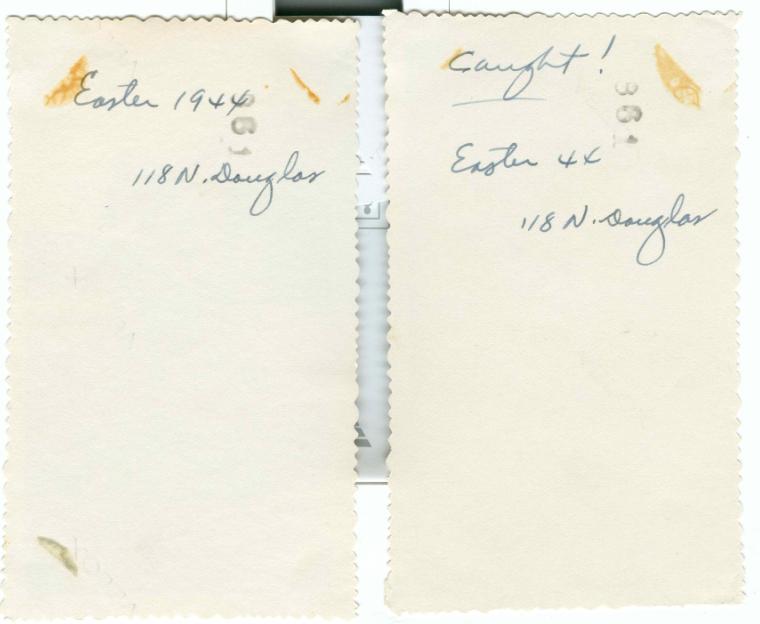 Easter 1944
118 N. Douglas
Caught!
Easter 44
118 N. Douglas